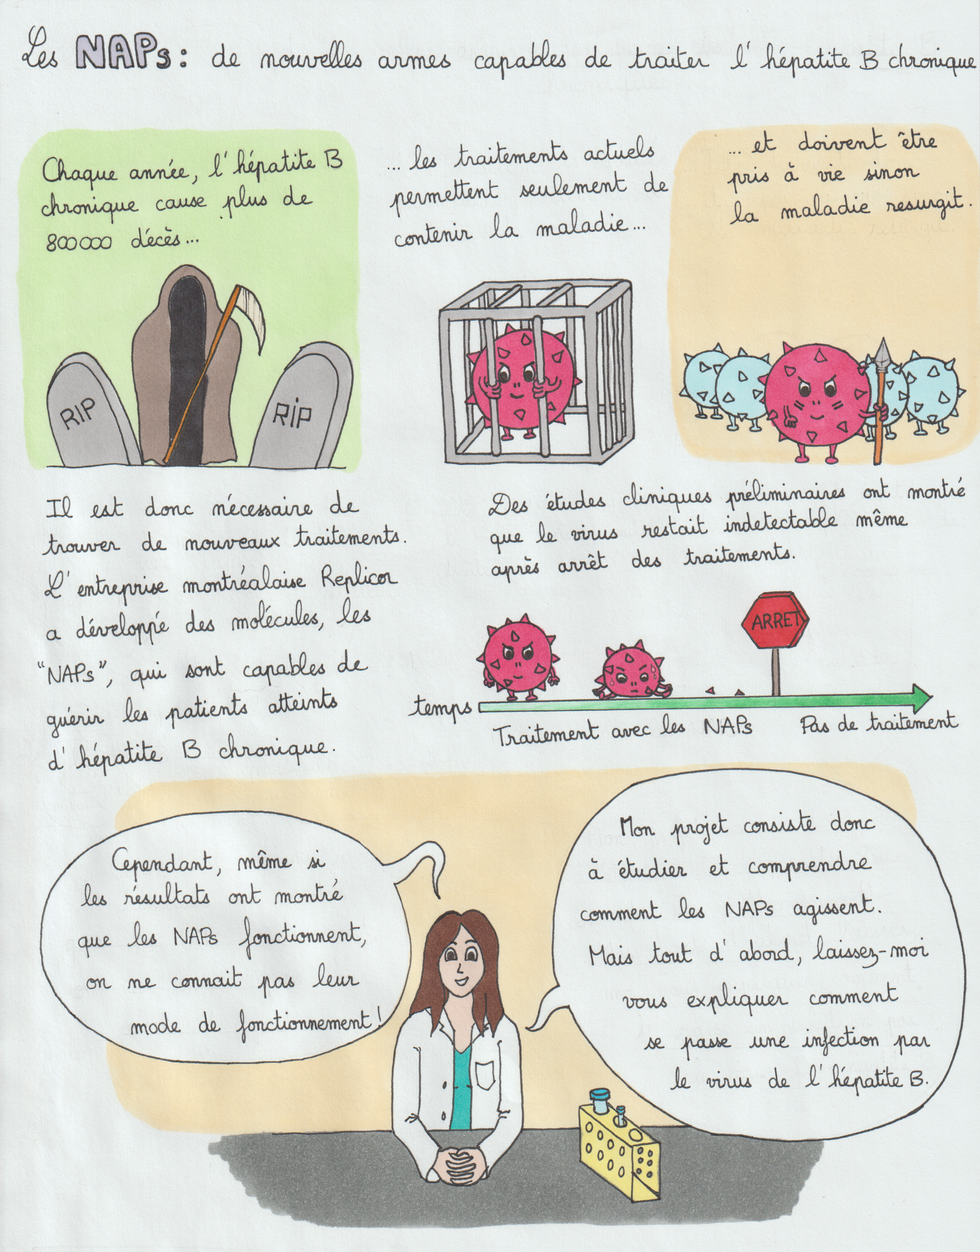 Les NAPs : de nouvelles armes capables de traiter l'hépatite B chronique
Chaque année, l'hépatite B
chronique cause plus de
800000 décès...
... les traitements actuels
permettent seulement de
contenir la maladie...
... et doivent être
pris à vie sinon
la maladie resurgit.
RIP
RIP
Il est donc nécessaire de
trouver de nouveaux traitements.
L'entreprise montréalaise Replicor
a développé des molécules, les
"NAPs", qui sont capables de
guérir les patients atteints
d'hépatite B chronique.
Des études cliniques préliminaires ont montré
que le virus restait indetectable même
après arrêt des traitements.
ARRET
temps
Traitement avec les NAPs
Pas de traitement
Cependant, même si
les résultats ont montré
que les NAPs fonctionnent,
on ne connait pas leur
mode de fonctionnement !
Mon projet consiste donc
à étudier et comprendre
comment les NAPs agissent.
Mais tout d'abord, laissez-moi
vous expliquer comment
se passe une infection par
le virus de l'hépatite B.